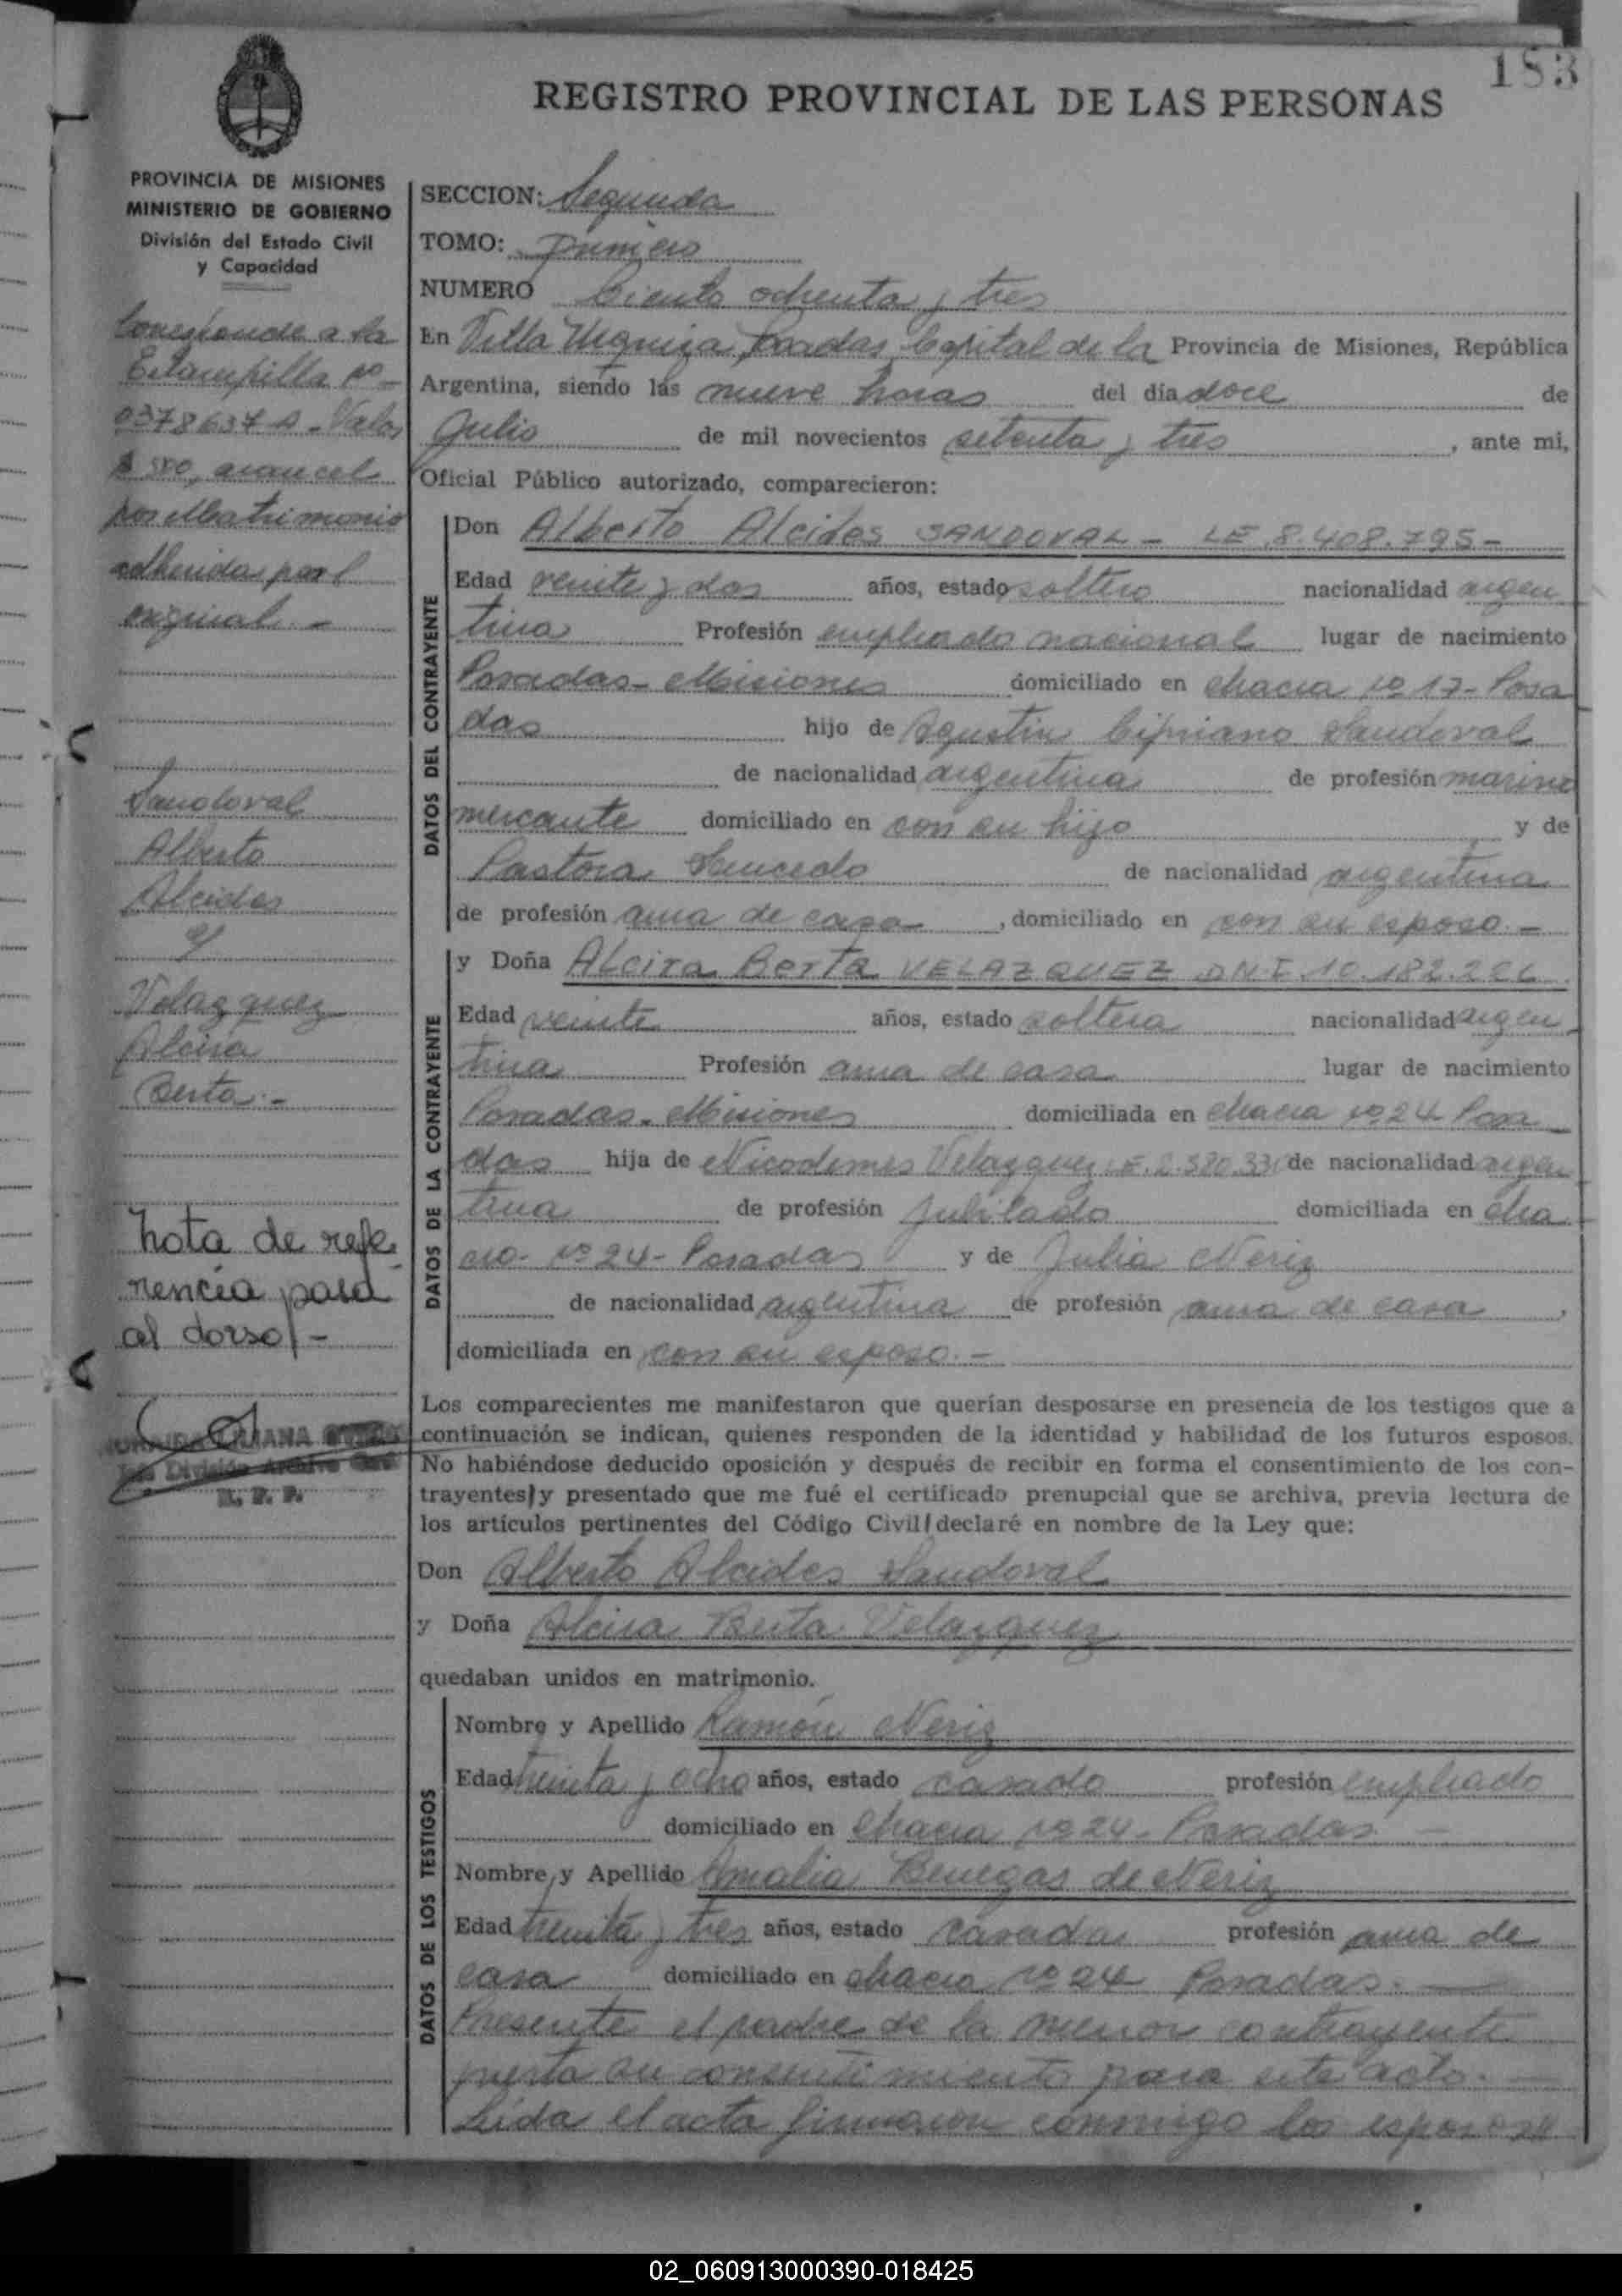 183
REGISTRO PROVINCIAL DE LAS PERSONAS
PROVINCIA DE MISIONES
MINISTERIO DE GOBIERNO
División del Estado Civil
y Capacidad
Corresponde a la
Estampilla Nº
0378637 A - Valor
$ 500, arancel
por Matrimonio
adherida par l
original. -
Sandoval
Alberto
Alcides
y
Velazquez
Alcira
Berta.-
Nota de refe-
rencia pasa
al dorso -
Jefe División Archivo
R. P. P.
SECCION: Segunda
TOMO: Primero
NUMERO Ciento ochenta y tres
En Villa Urquiza Posadas Capital de la Provincia de Misiones, República
Argentina, siendo las nueve horas del día doce de
Julio de mil novecientos setenta y tres, ante mi,
Oficial Público autorizado, comparecieron:
DATOS DEL CONTRAYENTE
Don Alberto Alcides SANDOVAL - LE 8.408.795-
Edad veinte y dos años, estado soltero nacionalidad argen
tina Profesión empleado nacional lugar de nacimiento
Posadas - Misiones domiciliado en chacra Nº 17 - Posa
das hijo de Agustin Cipriano Sandoval
de nacionalidad argentina de profesión marino
mercante domiciliado en con su hijo y de
Pastora Saucedo de nacionalidad argentina
de profesión ama de casa, domiciliado en con su esposo. -
DATOS DE LA CONTRAYENTE
y Doña Alcira Berta VELAZQUEZ D.N.I. 10.182.226
Edad veinte años, estado soltera nacionalidad argen
tina Profesión ama de casa lugar de nacimiento
Posadas - Misiones domiciliada en chacra Nº 24 Posa
das hija de Nicodemes Velazquez de nacionalidad argen
tina de profesión Jubilado domiciliada en cha
cra - Nº 24 - Posadas y de Julia Neriz
de nacionalidad argentina de profesión ama de casa,
domiciliada en con su esposo. -
Los comparecientes me manifestaron que querían desposarse en presencia de los testigos que a
continuación se indican, quienes responden de la identidad y habilidad de los futuros esposos.
No habiéndose deducido oposición y después de recibir en forma el consentimiento de los con-
trayentes/y presentado que me fué el certificado prenupcial que se archiva, previa lectura de
los artículos pertinentes del Código Civil/declaré en nombre de la Ley que:
Don Alberto Alcides Sandoval
y Doña Alcira Berta Velazquez
quedaban unidos en matrimonio.
DATOS DE LOS TESTIGOS
Nombre y Apellido Ramón Neriz
Edad treinta y ocho años, estado casado profesión empleado
domiciliado en chacra Nº 24 - Posadas -
Nombre y Apellido Amalia Benegas de Neriz
Edad treinta y tres años, estado casada profesión ama de
casa domiciliado en chacra Nº 24 Posadas. -
Presente el padre de la menor contrayente
presta su consentimiento para este acto. -
Leída el acta firmaron conmigo los esposos
02_060913000390-018425